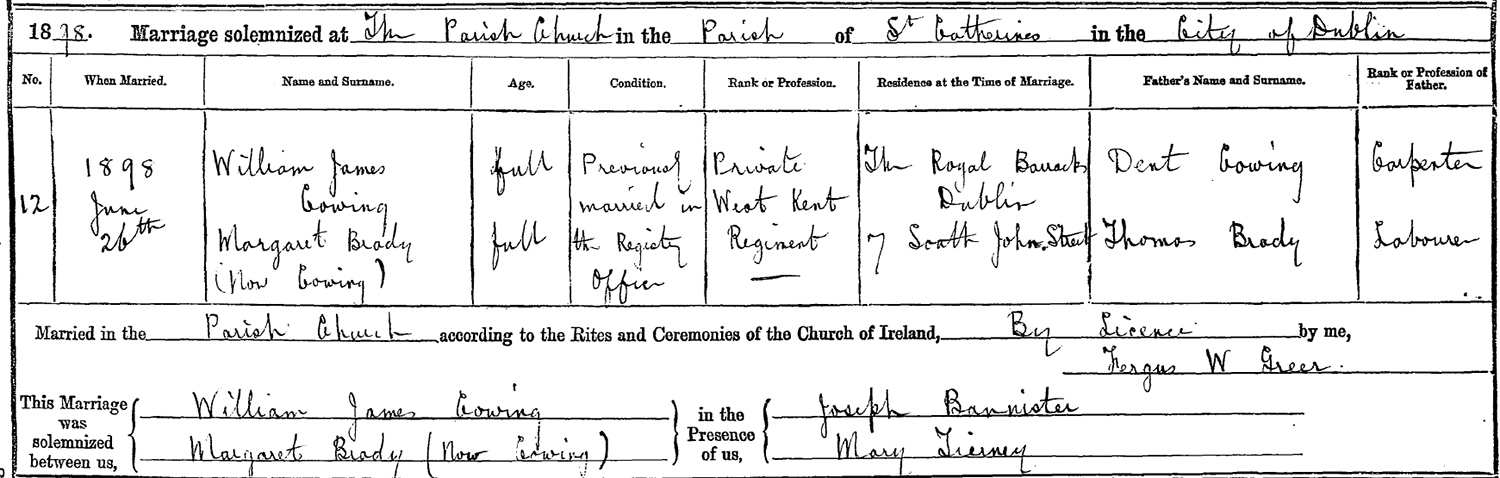 1898. Marriage solemnized at The Parish Church in the Parish of St Catherines in the City of Dublin
No. When Married. Name and Surname. Age. Condition. Rank or Profession. Residence at the Time of Marriage. Father's Name and Surname. Rank or Profession of Father.
12
1898
June
26th
William James
Cowing
Margaret Brady
(Now Cowing)
full
full
Previously
married in
the Registry
Office
Private
West Kent
Regiment
—
The Royal Barracks
Dublin
7 South John Street
Dent Cowing
Thomas Brady
Carpenter
Labourer
Married in the Parish Church according to the Rites and Ceremonies of the Church of Ireland, By Licence by me,
Fergus W Greer.
This Marriage was solemnized between us,
William James Cowing
Margaret Brady (Now Cowing)
in the Presence of us,
Joseph Bannister
Mary Tierney